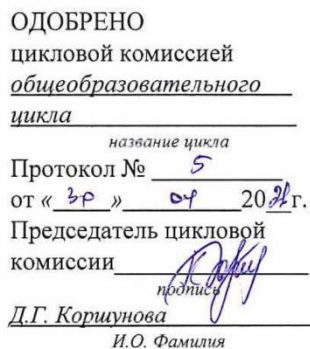 ОДОБРЕНО
цикловой комиссией
общеобразовательного
цикла
название цикла
Протокол № 5
от « » 04 20 г.
Председатель цикловой
комиссии
подпись
Д.Г. Коршунова
И.О. Фамилия